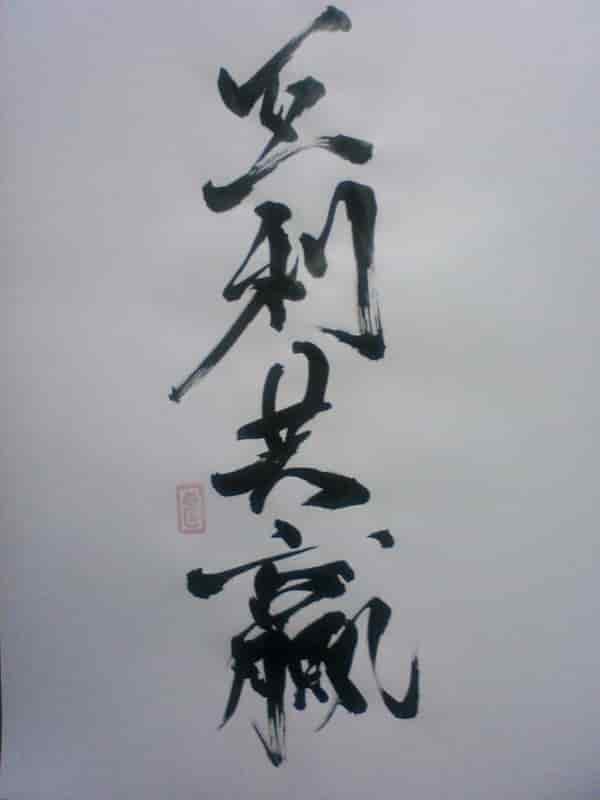 互利共赢